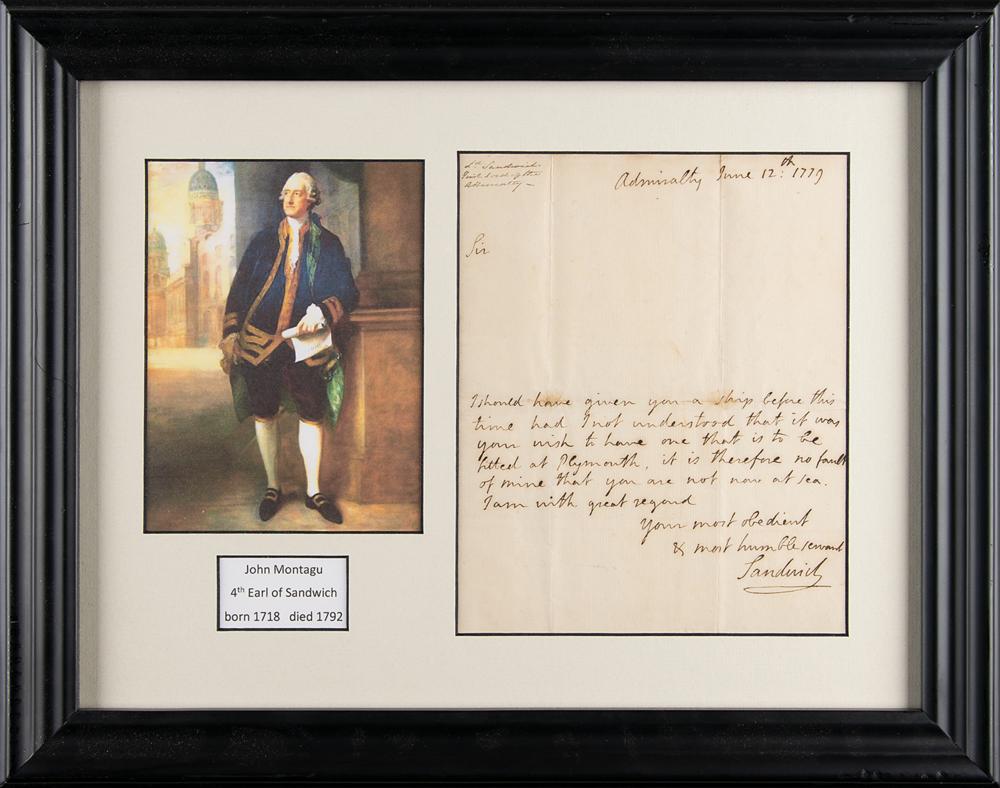 Ld. Sandwich
First Lord of the
Admiralty –
Admiralty June 12th: 1779
Sir
I should have given you a ship before this
time had I not understood that it was
your wish to have one that is to be
fitted at Plymouth, it is therefore no fault
of mine that you are not now at sea.
I am with great regard
Your most obedient
& most humble servant
Sandwich
John Montagu
4th Earl of Sandwich
born 1718 died 1792